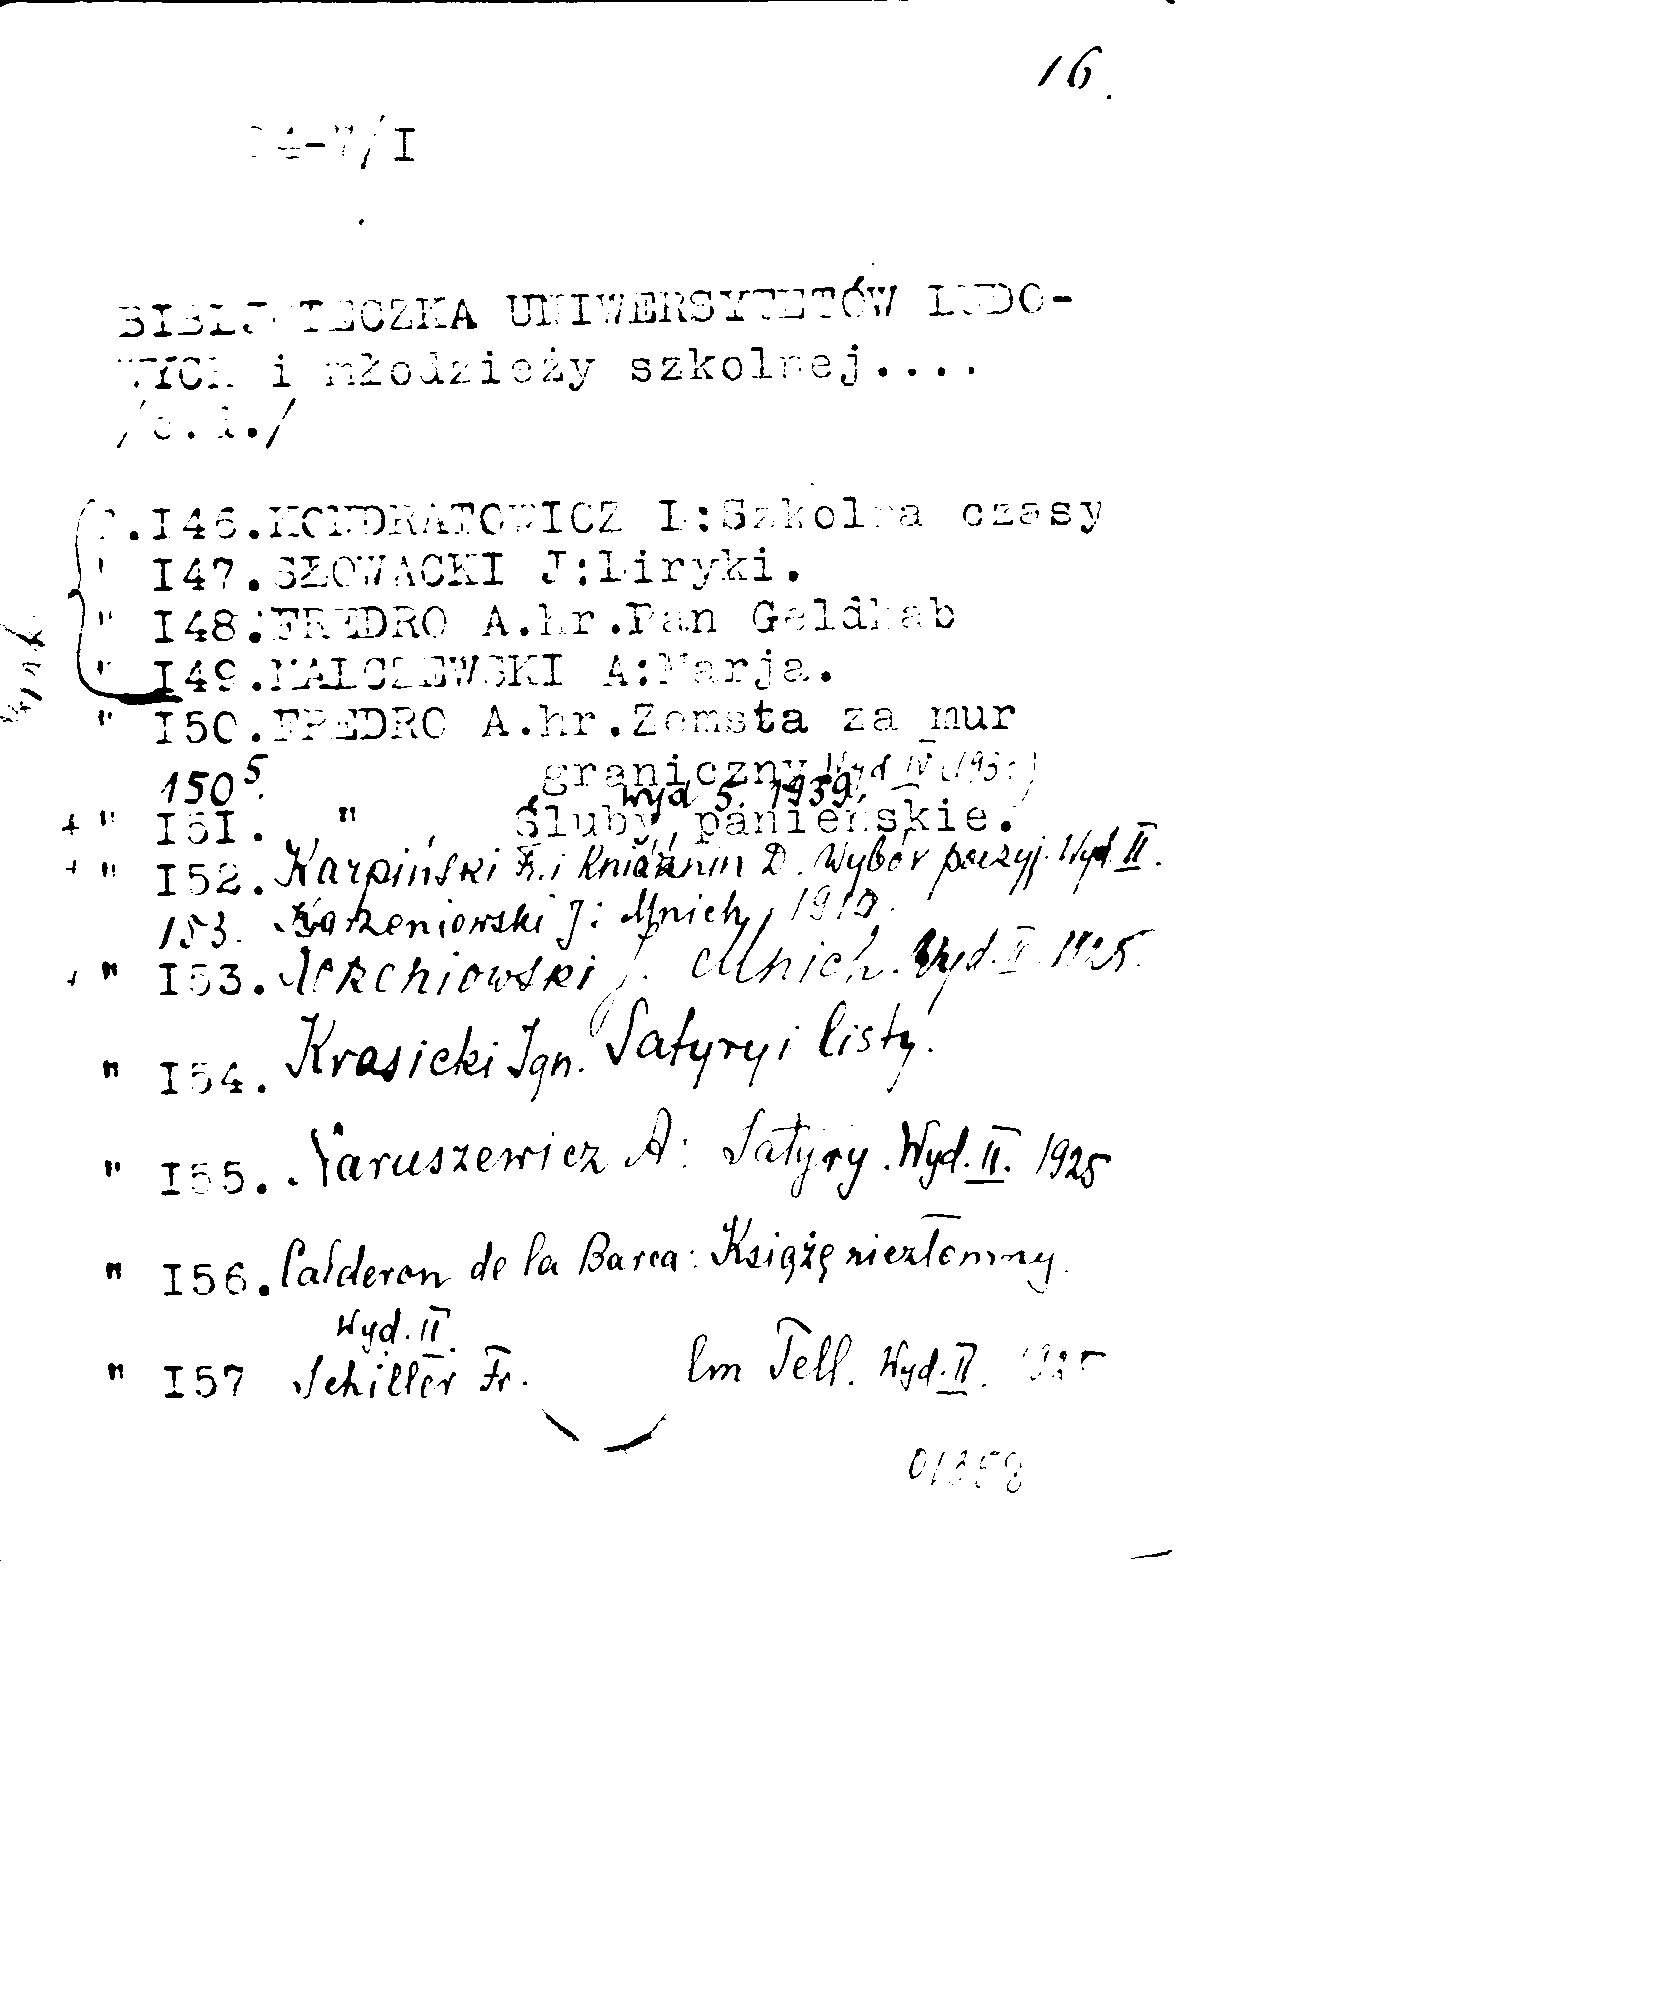 16.
4-7/I
BIBLJOTECZKA UNIWERSYTETÓW LUDO-
WYCH i młodzieży szkolnej....
/c.d./
T.I46.KONDRATOWICZ L:Szkolna czasy
" I47.SŁOWACKI J:Liryki.
" I48.FREDRO A.hr.Pan Geldhab
" I49.MALCZEWSKI A:Marja.
" I50.FREDRO A.hr.Zemsta za mur
graniczny Wyd IV (193
150⁵. wyd 5. 1939.
+ " I5I. " Śluby panieńskie.
+ " I52. Karpiński Fr. i Kniaźnin D. Wybór poezyj. Wyd. II.
153. Korzeniowski J: Mnich, 1910.
+ " I53. Korzeniowski J. Mnich. Wyd. II 1925.
" I54. Krasicki Ign. Satyry i listy.
" I55. Naruszewicz A: Satyry. Wyd. II. 1925
" I56. Calderon de la Barca: Książę niezłomny.
Wyd. II.
" I57 Schiller Fr. lm Tell. Wyd. II. 1925